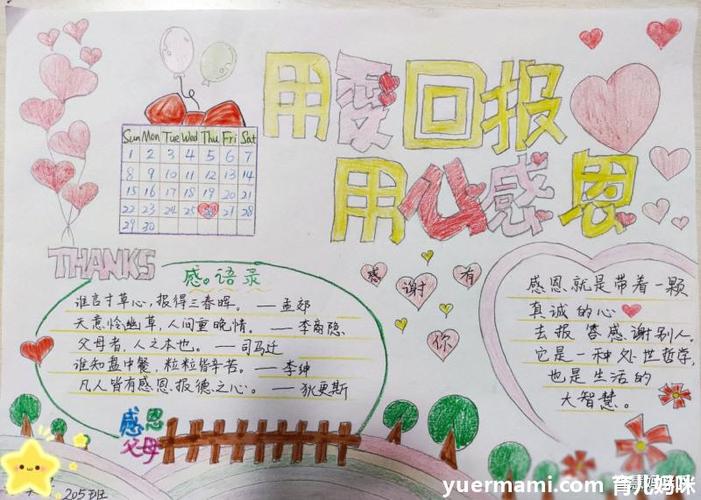 用愛回报
用心感恩
Sun Mon Tue Wed Thu Fri Sat
1 2 3 4 5 6 7
8 9 10 11 12 13 14
15 16 17 18 19 20 21
22 23 24 25 26 27 28
29 30
THANKS
感。语录
谁言寸草心,报得三春晖。—孟郊
天意怜幽草,人间重晚情。—李商隐
父母者,人之本也。—司马迁
谁知盘中餐,粒粒皆辛苦。—李绅
凡人皆有感恩报德之心。—狄更斯
感谢有你
感恩就是带着一颗
真诚的心
去报答感谢别人。
它是一种处世哲学,
也是生活的
大智慧。
感恩
父母
205班
yuermami.com 育儿妈咪